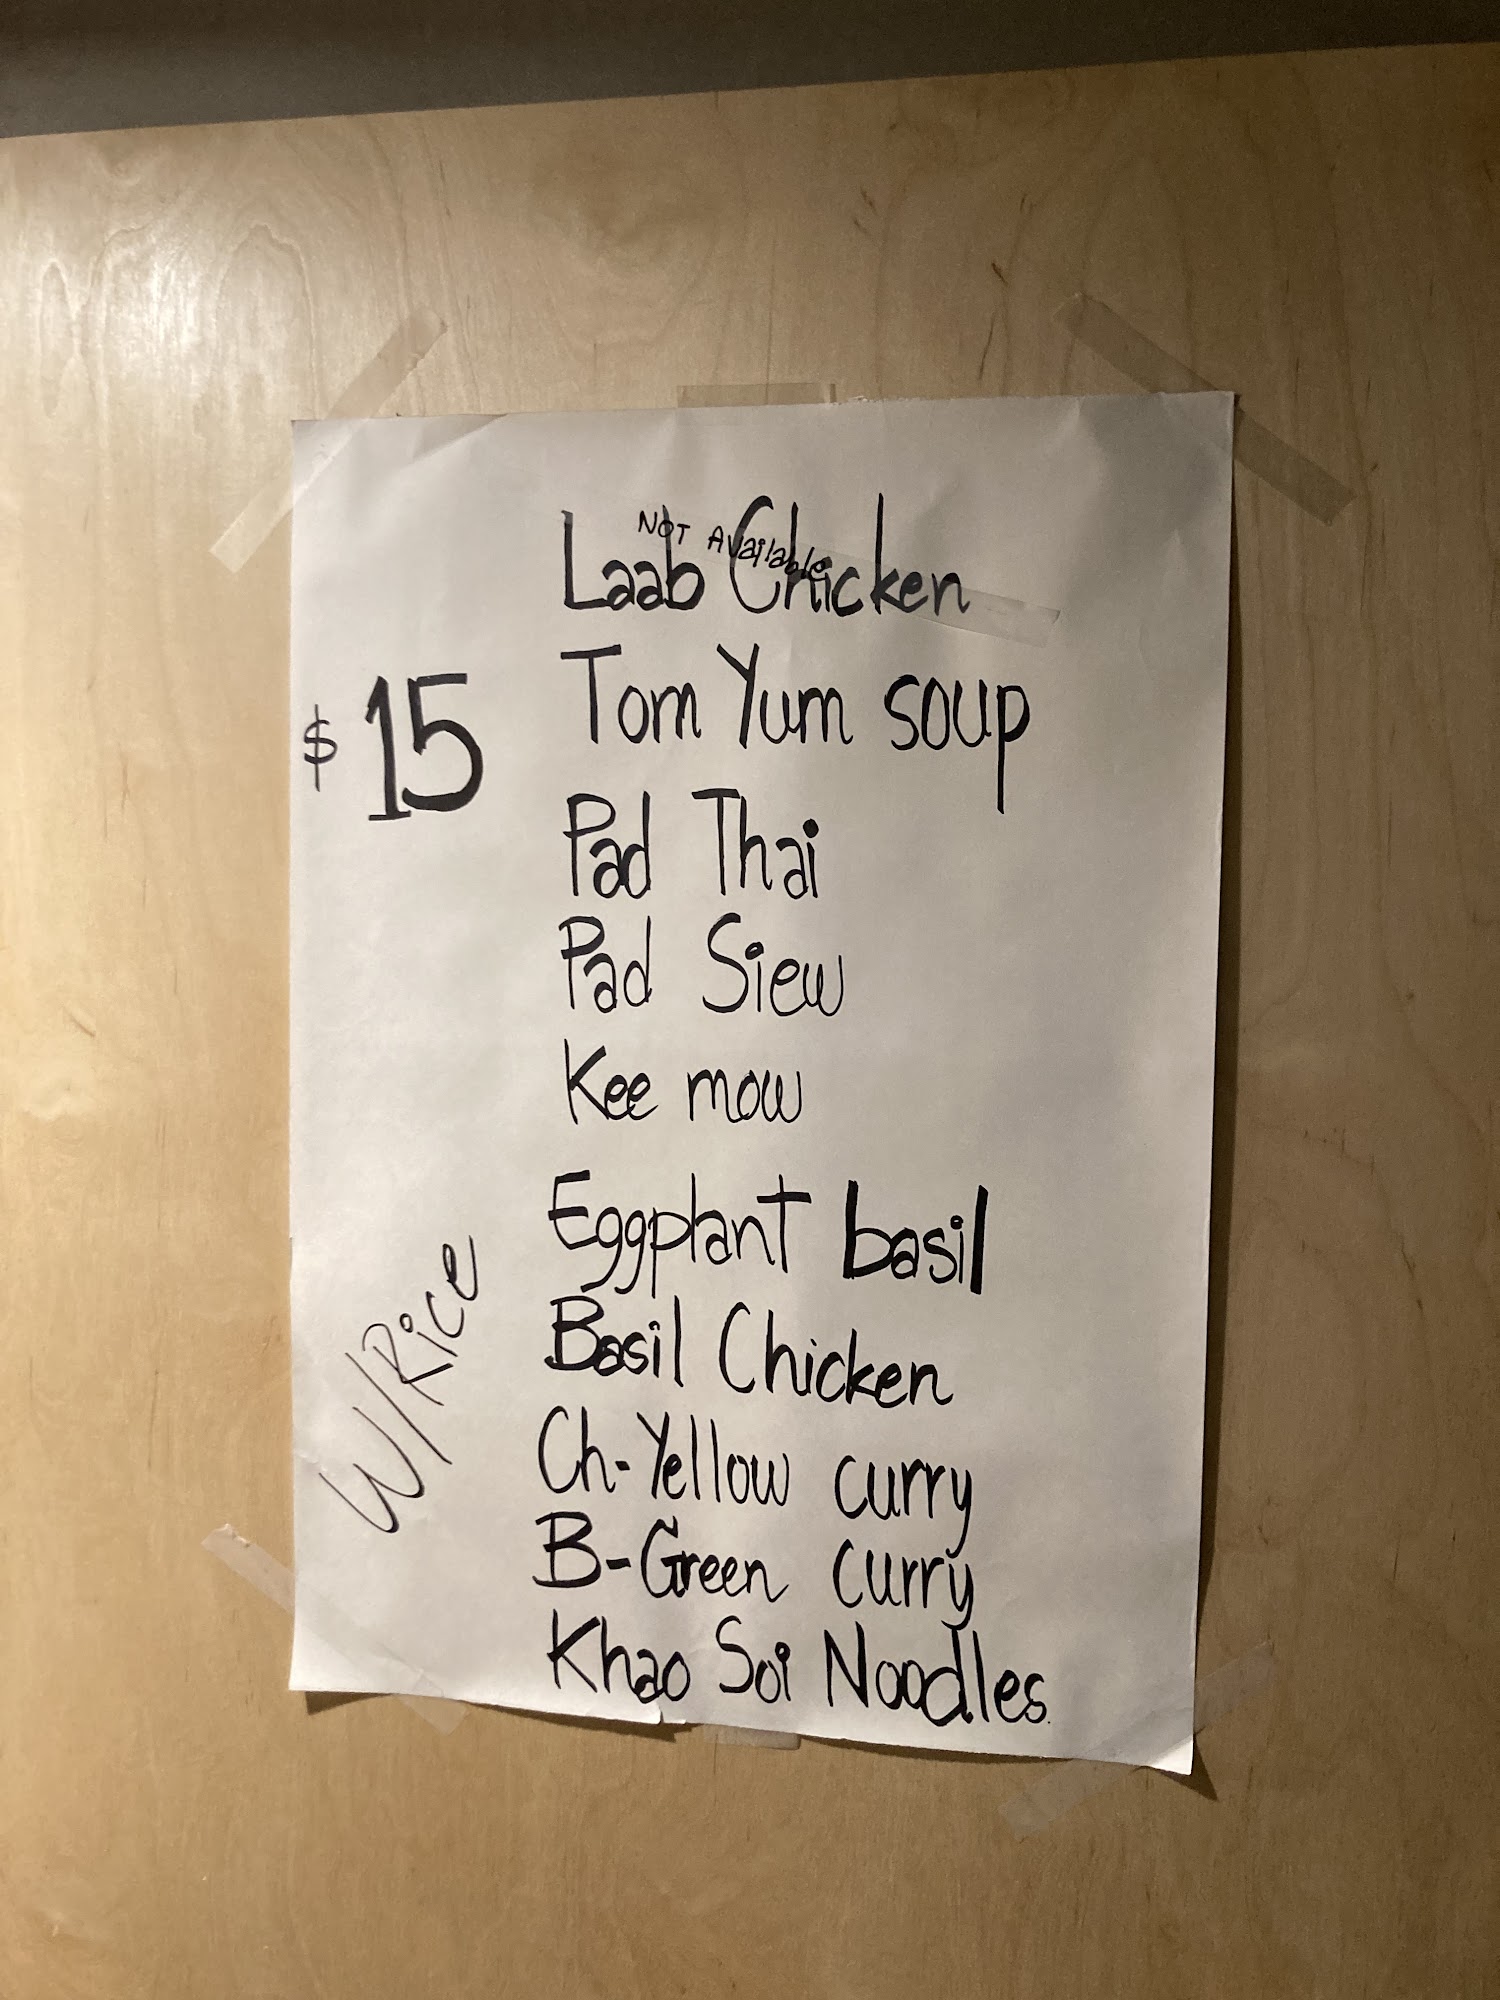 NOT Available
Laab Chicken
Tom Yum soup
$ 15
Pad Thai
Pad Siew
Kee mow
Eggplant basil
Basil Chicken
W/Rice
Ch-Yellow curry
B-Green curry
Khao Soi Noodles.